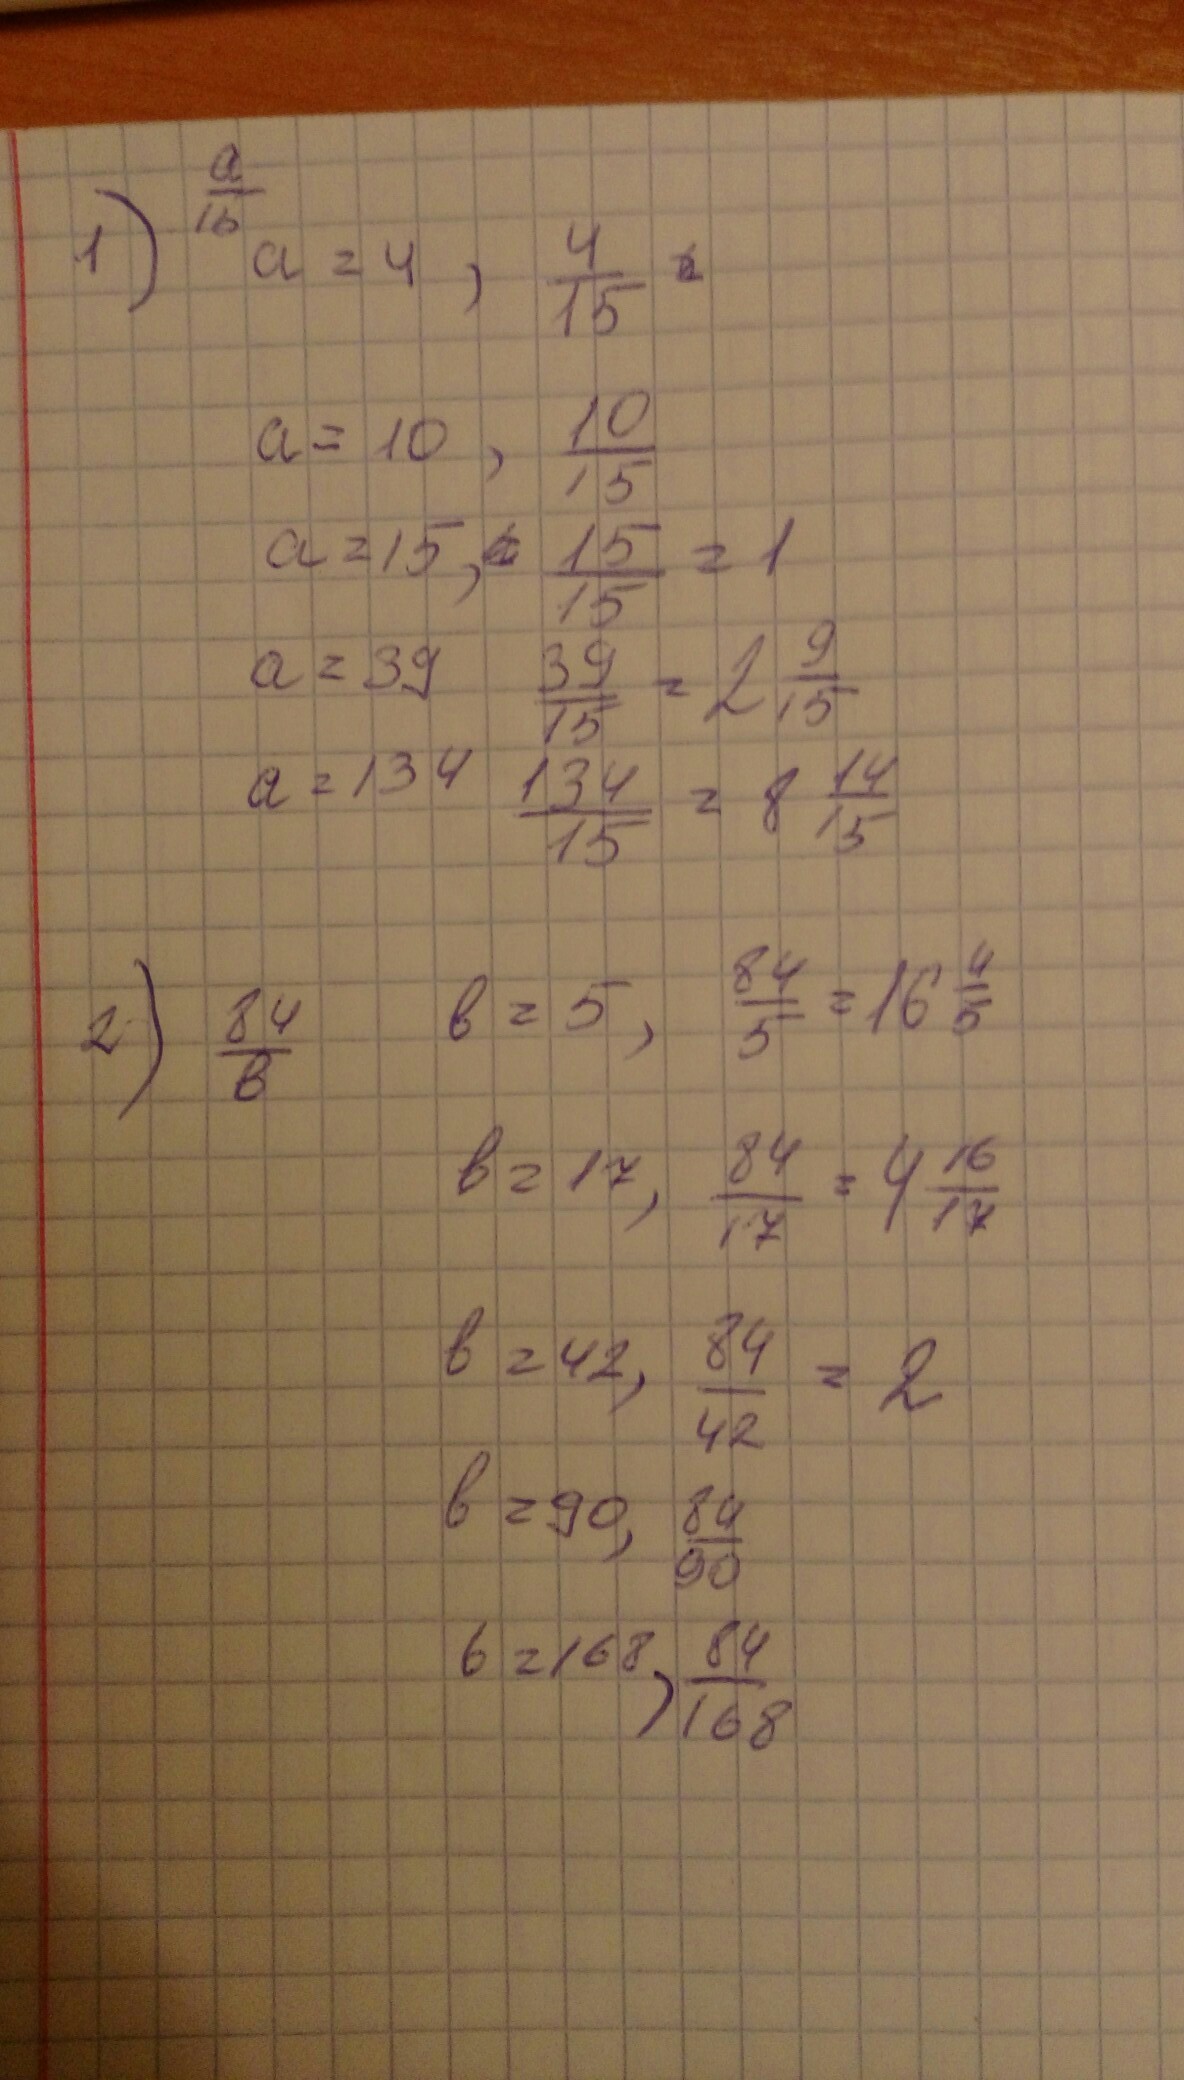 1) a/15
a = 4, 4/15
a = 10, 10/15
a = 15, 15/15 = 1
a = 39 39/15 = 2 9/15
a = 134 134/15 = 8 14/15
2) 84/в в = 5, 84/5 = 16 4/5
в = 17, 84/17 = 4 16/17
в = 42, 84/42 = 2
в = 90, 84/90
в = 168, 84/168